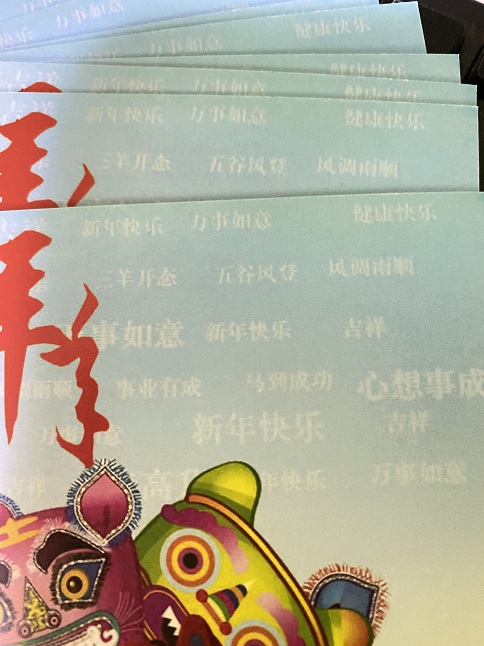 万事如意
快乐 万事如意 健康快乐
健康快乐
新年快乐 万事如意 健康快乐
吉祥 新年快乐 万事如意 健康快乐
三羊开态 五谷风登 风调雨顺
新年快乐 万事如意 健康快乐
三羊开态 五谷风登 风调雨顺
事如意 新年快乐 吉祥
羊年
雨顺 事业有成 马到成功 心想事成
新年快乐 吉祥
吉祥 高升 年快乐 万事如意